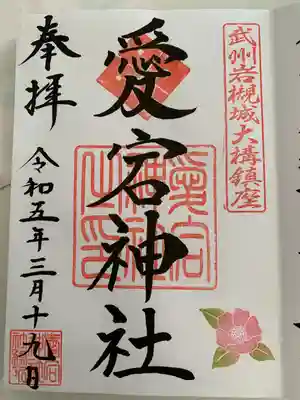 武州岩槻城大構鎮座
愛宕神社
奉拝
令和五年三月十九日